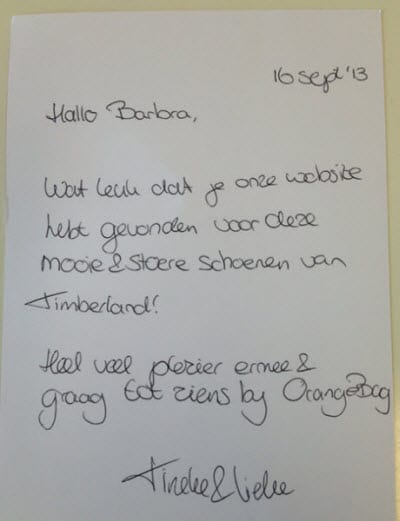 16 sept '13
Hallo Barbra,
Wat leuk dat je onze website
hebt gevonden voor deze
mooie & stoere schoenen van
Timberland!
Heel veel plezier ermee &
graag tot ziens by OrangeBag
Tineke & Lieke